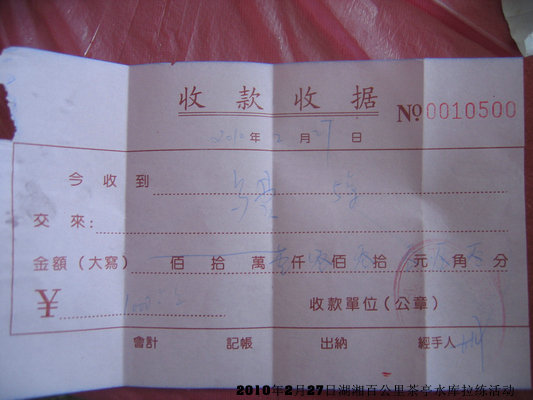 收款收据
No 0010500
2010年2月27日
今收到
交來:
金額(大寫) 佰拾萬仟佰拾元角分
¥
收款單位(公章)
會計 記帳 出納 經手人
2010年2月27日湖湘百公里茶亭水库拉练活动